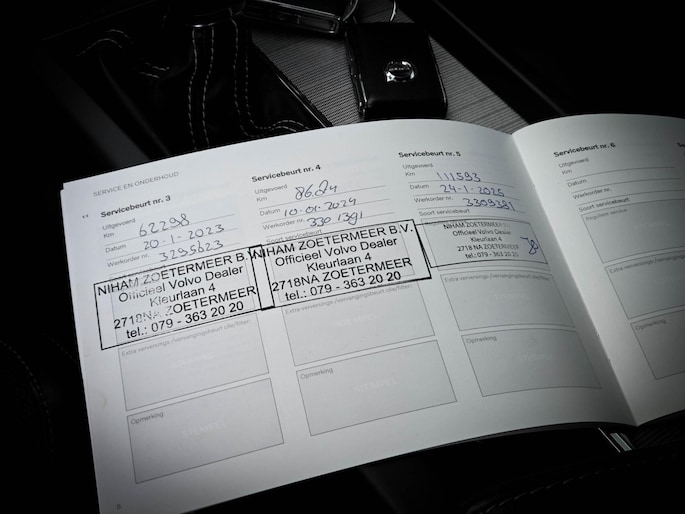 SERVICE EN ONDERHOUD
Servicebeurt nr. 3
Uitgevoerd
Km 62298
Datum 20-1-2023
Werkorder nr. 3295623
NIHAM ZOETERMEER B.V.
Officieel Volvo Dealer
Kleurlaan 4
2718NA ZOETERMEER
tel.: 079 - 363 20 20
Extra verversings-/vervangingsbeurt olie/filter:
Opmerking
Servicebeurt nr. 4
Uitgevoerd
Km
Datum 10-01-2024
Werkorder nr. 3301391
Soort servicebeurt
NIHAM ZOETERMEER B.V.
Officieel Volvo Dealer
Kleurlaan 4
2718NA ZOETERMEER
tel.: 079 - 363 20 20
Extra verversings-/vervangingsbeurt olie/filter:
Opmerking
Servicebeurt nr. 5
Uitgevoerd
Km 111593
Datum 24-1-2025
Werkorder nr. 3309381
Soort servicebeurt
NIHAM ZOETERMEER B.V.
Officieel Volvo Dealer
Kleurlaan 4
2718 NA ZOETERMEER
tel.: 079 - 363 20 20
Extra verversings-/vervangingsbeurt olie/filter:
Opmerking
Servicebeurt nr. 6
Uitgevoerd
Km
Datum
Werkorder nr.
Extra verversings-/vervangingsbeurt
Opmerking